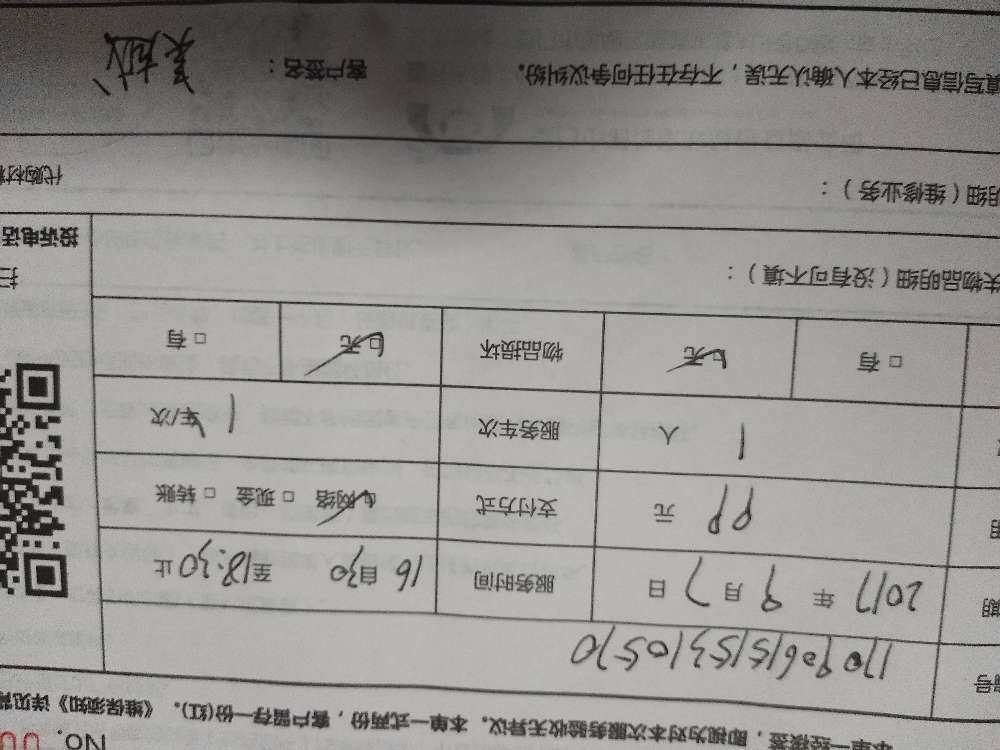 No. 00
本单一经接签，即视为对本次服务验收无异议。本单一式两份，客户留存一份(红)。《维保须知》详见背
编号 170906151531 0570
期 2017 年 9 月 7 日 服务时间 16 自30 至18:30止
明 99 元 支付方式 ☑网络 □现金 □转账
1 人 服务车次 1 车/次
□有 ☑无 物品损坏 ☑无 □有
失物品明细（没有可不填）：
扫
投诉电话
明细（维修业务）：
代购材料
填写信息已经本人确认无误，不存在任何争议纠纷。 客户签名：